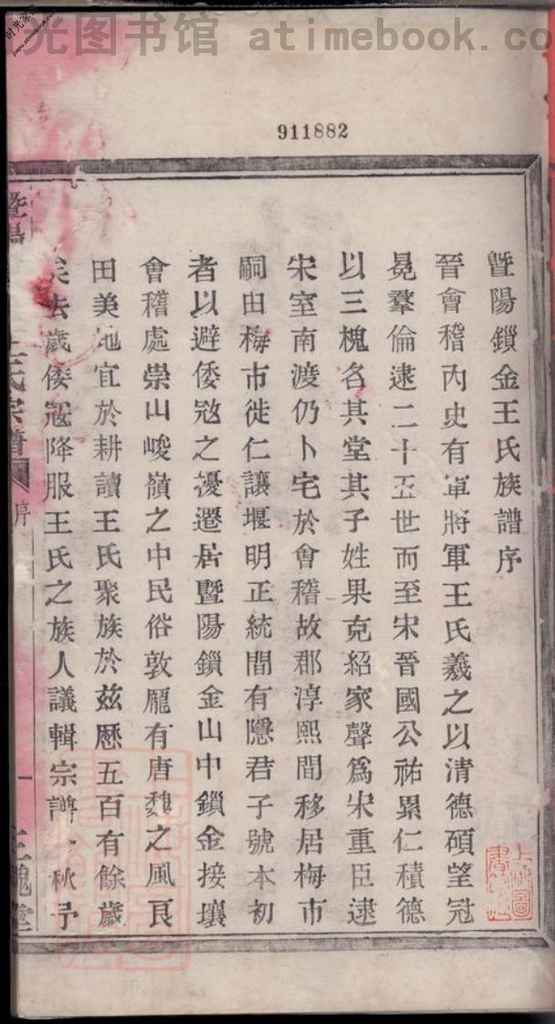 光图书馆 atimebook.co
911882
暨陽鎖金王氏族譜序
晉會稽內史右軍將軍王氏羲之以清德碩望冠
冕羣倫逮二十五世而至宋晉國公祐累仁積德
以三槐名其堂其子姓果克紹家聲爲宋重臣逮
宋室南渡仍卜宅於會稽故郡淳熙間移居梅市
嗣由梅市徙仁讓堰明正統間有隱君子號本初
者以避倭寇之擾遷居暨陽鎖金山中鎖金接壤
會稽處崇山峻嶺之中民俗敦龐有唐魏之風良
田美地宜於耕讀王氏聚族於茲歷五百有餘歲
矣去歲倭寇降服王氏之族人議輯宗譜 秋予
暨陽 王氏宗譜 序 一 三槐堂